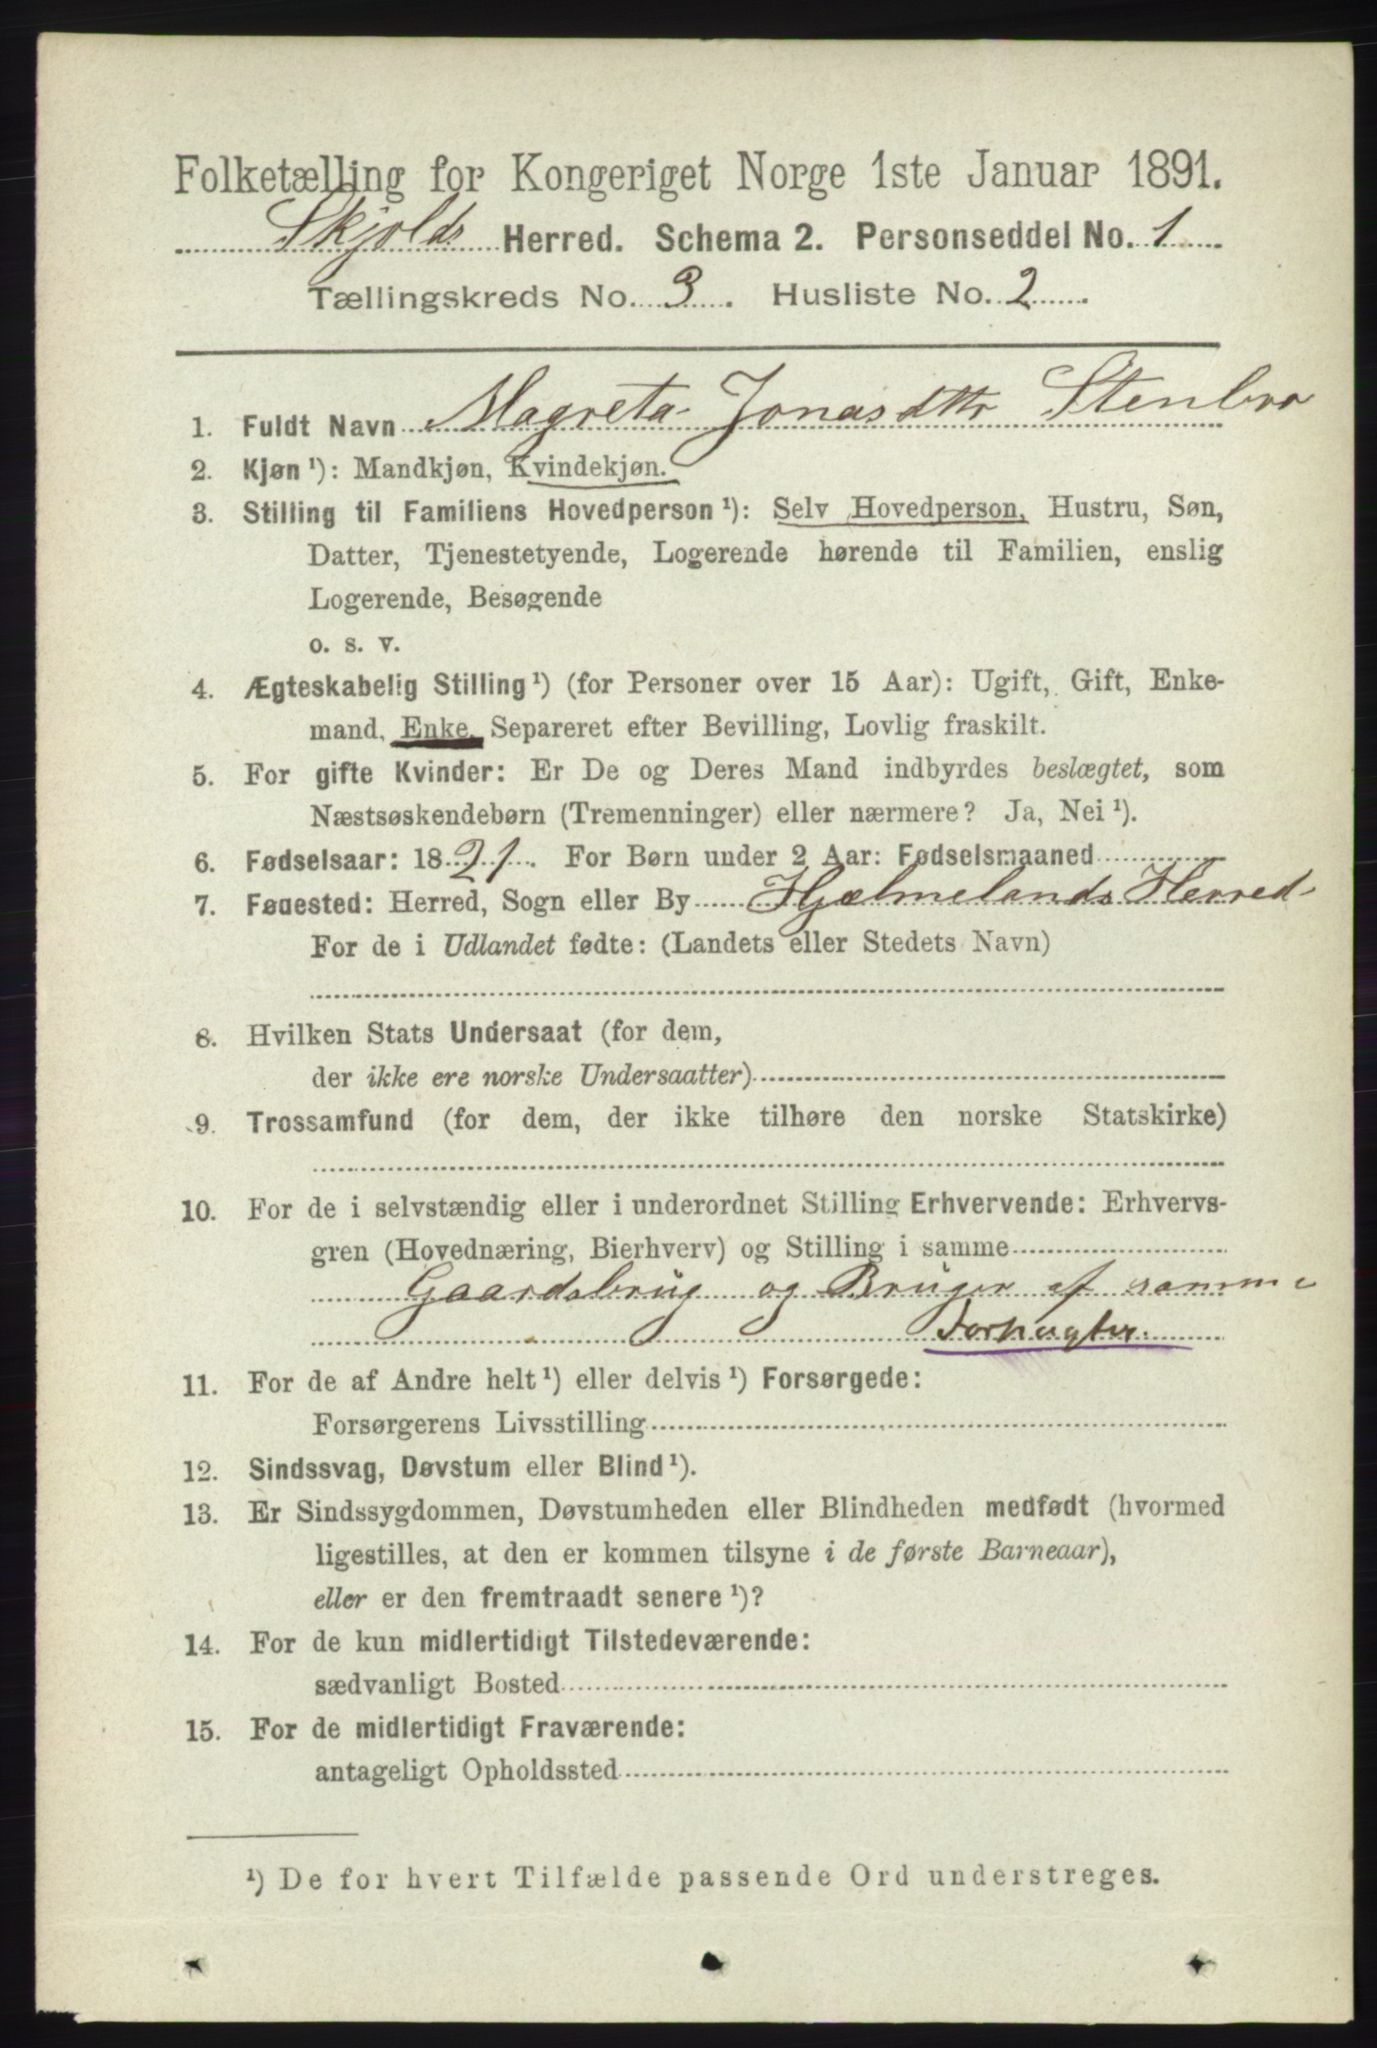 Folketælling for Kongeriget Norge 1ste Januar 1891.
Skjolds Herred. Schema 2. Personseddel No. 1
Tællingskreds No. 3. Husliste No. 2
1. Fuldt Navn Magreta Jonasdttr Stenbro
2. Kjøn ¹): Mandkjøn, Kvindekjøn.
3. Stilling til Familiens Hovedperson ¹): Selv Hovedperson, Hustru, Søn,
Datter, Tjenestetyende, Logerende hørende til Familien, enslig
Logerende, Besøgende
o. s. v.
4. Ægteskabelig Stilling ¹) (for Personer over 15 Aar): Ugift, Gift, Enke-
mand, Enke, Separeret efter Bevilling, Lovlig fraskilt.
5. For gifte Kvinder: Er De og Deres Mand indbyrdes beslægtet, som
Næstsøskendebørn (Tremenninger) eller nærmere? Ja, Nei ¹).
6. Fødselsaar: 1821. For Børn under 2 Aar: Fødselsmaaned
7. Føuested: Herred, Sogn eller By Hjælmelands Herred
For de i Udlandet fødte: (Landets eller Stedets Navn)
8. Hvilken Stats Undersaat (for dem,
der ikke ere norske Undersaatter)
9. Trossamfund (for dem, der ikke tilhøre den norske Statskirke)
10. For de i selvstændig eller i underordnet Stilling Erhvervende: Erhvervs-
gren (Hovednæring, Bierhverv) og Stilling i samme
Gaardsbrug og Bruger af samme
Forpagter.
11. For de af Andre helt ¹) eller delvis ¹) Forsørgede:
Forsørgerens Livsstilling
12. Sindssvag, Døvstum eller Blind ¹).
13. Er Sindssygdommen, Døvstumheden eller Blindheden medfødt (hvormed
ligestilles, at den er kommen tilsyne i de første Barneaar),
eller er den fremtraadt senere ¹)?
14. For de kun midlertidigt Tilstedeværende:
sædvanligt Bosted
15. For de midlertidigt Fraværende:
antageligt Opholdssted
¹) De for hvert Tilfælde passende Ord understreges.